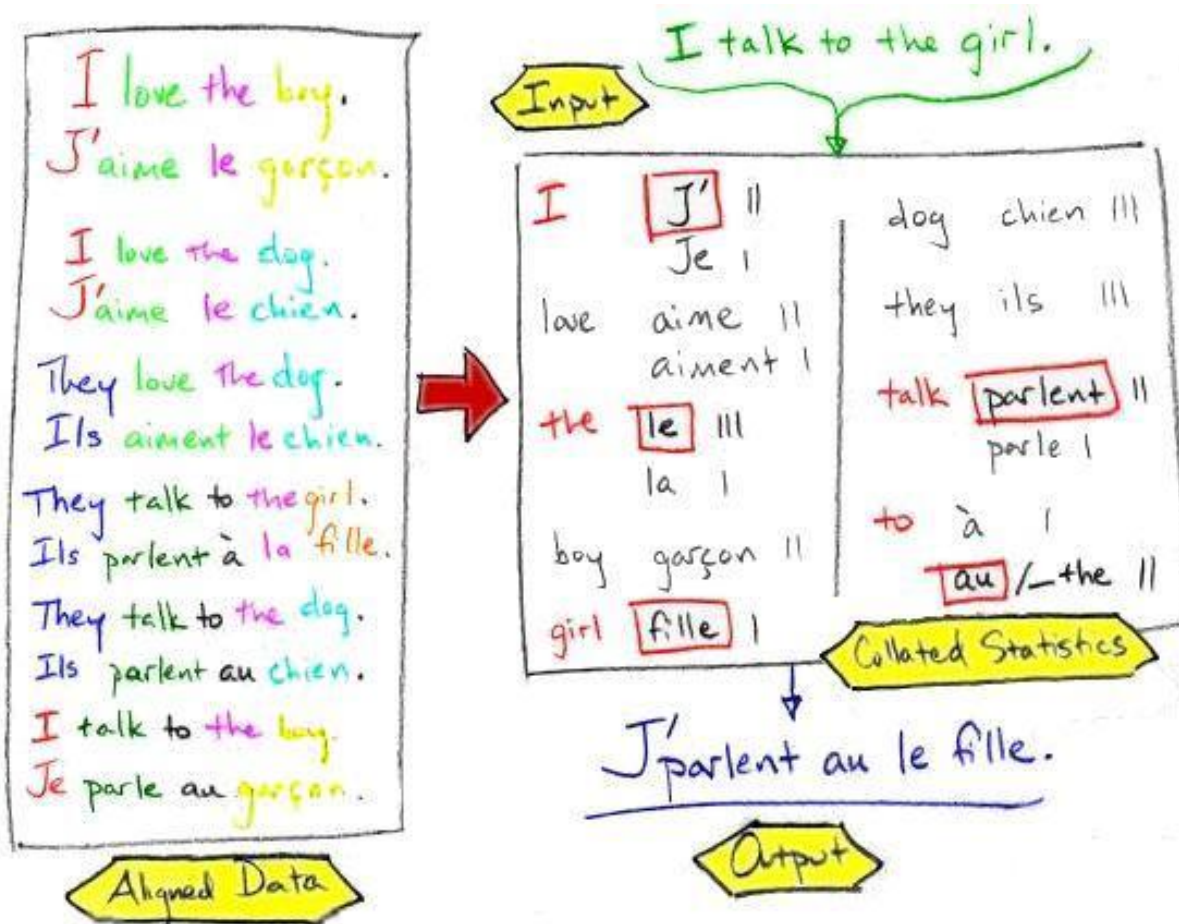 I love the boy.
J'aime le garçon.
I love the dog.
J'aime le chien.
They love the dog.
Ils aiment le chien.
They talk to the girl.
Ils parlent à la fille.
They talk to the dog.
Ils parlent au chien.
I talk to the boy.
Je parle au garçon.
Aligned Data
I talk to the girl.
Input
I J' ||
Je |
love aime ||
aiment |
the le |||
la |
boy garçon ||
girl fille |
dog chien |||
they ils |||
talk parlent ||
parle |
to à |
au /_ the ||
Collated Statistics
J'parlent au le fille.
Output